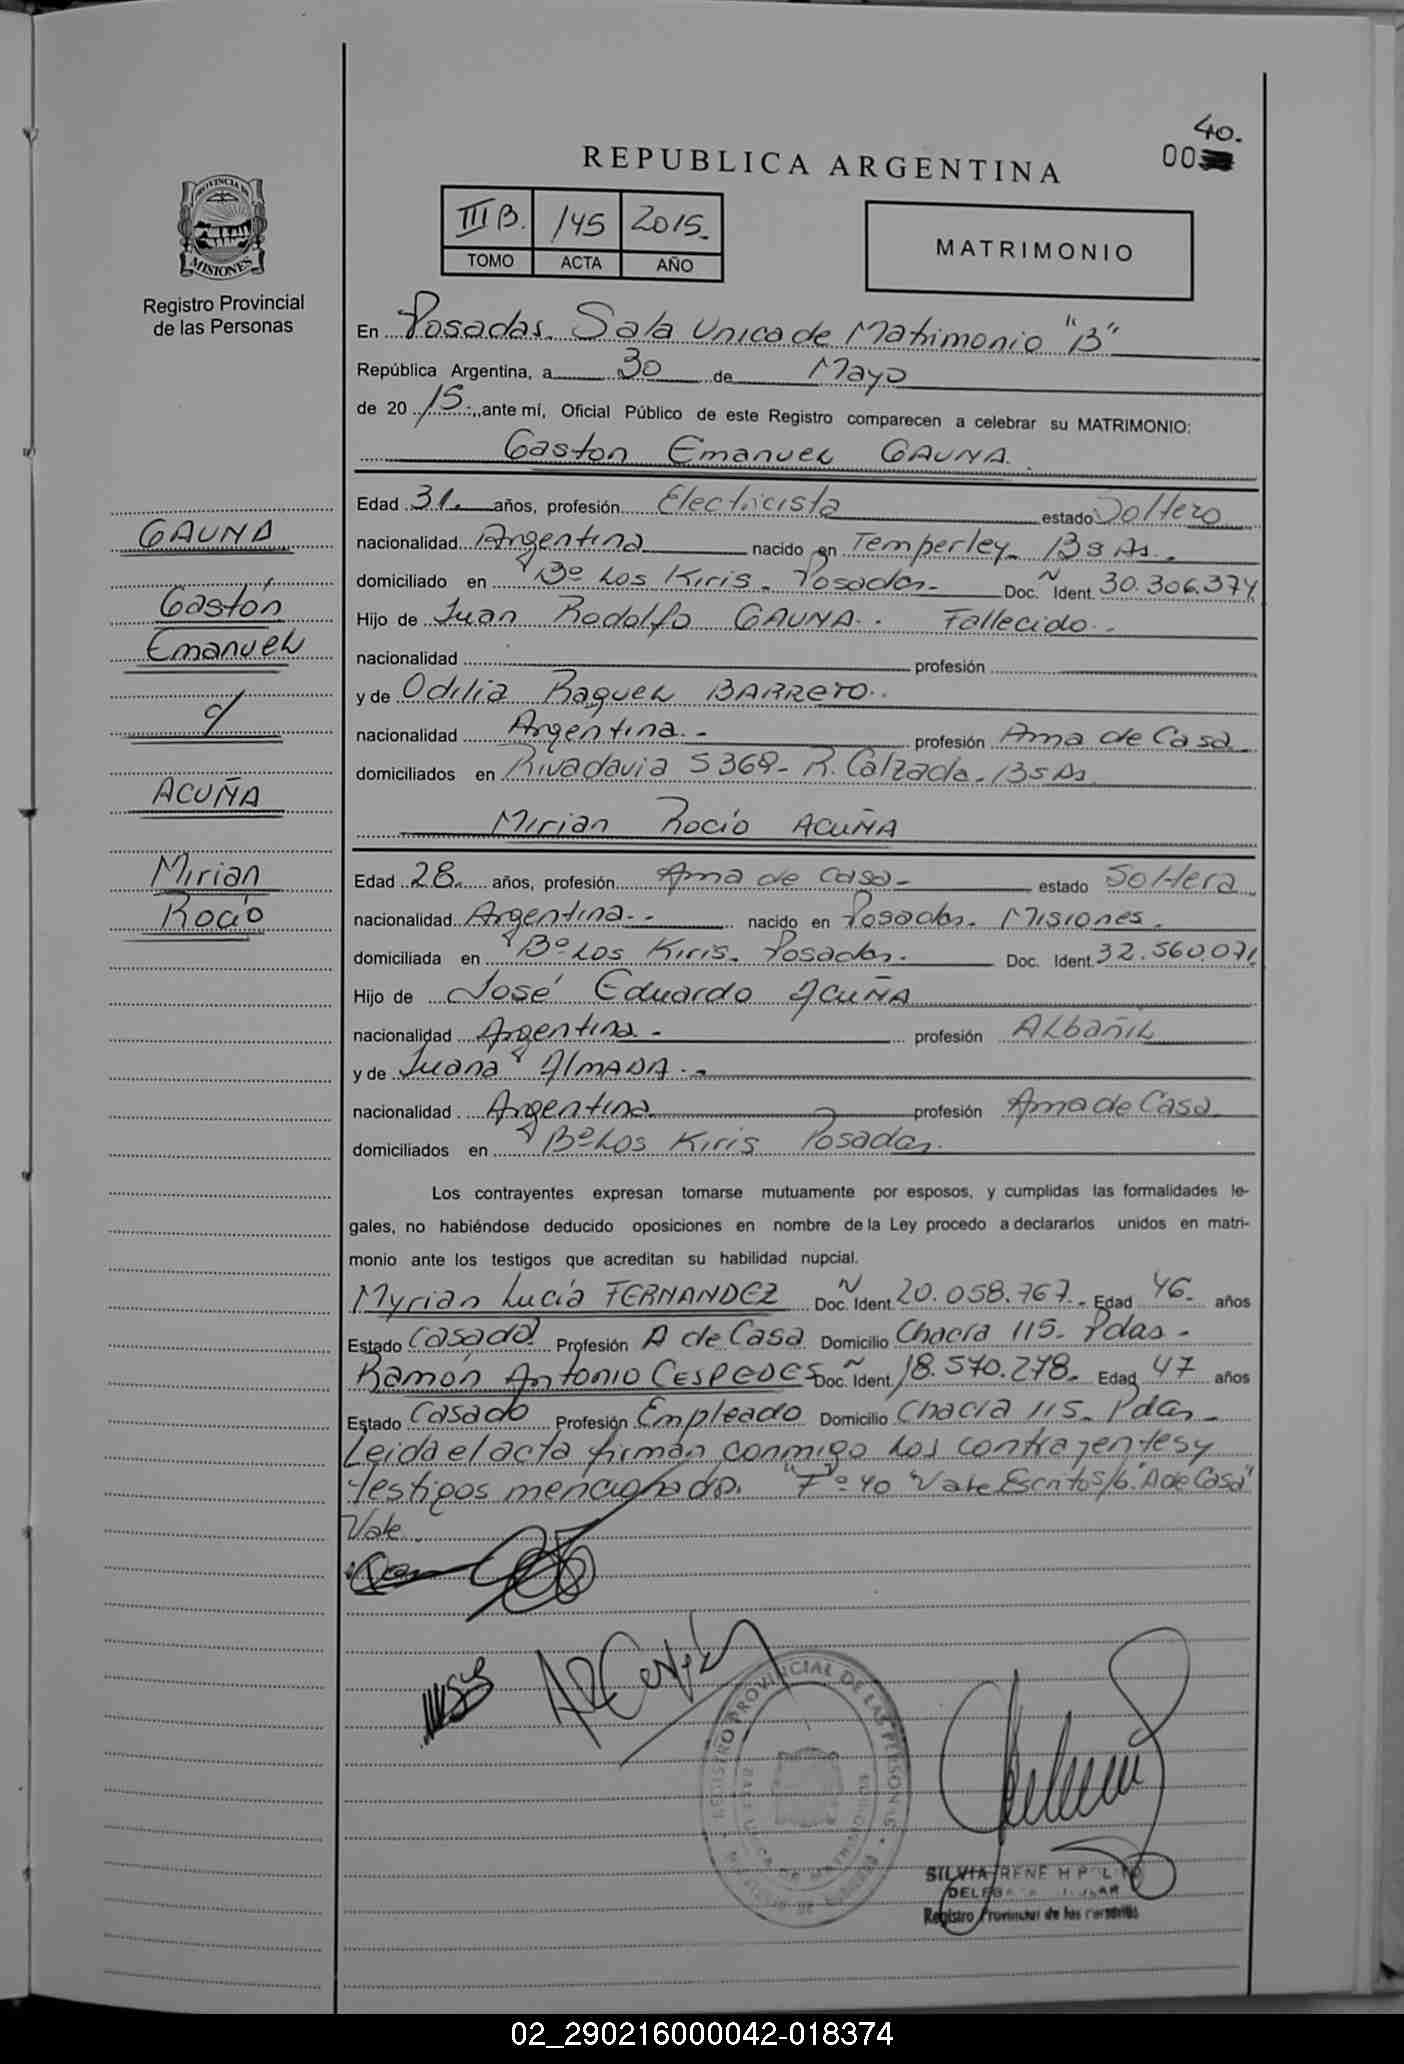 40.
00
REPUBLICA ARGENTINA
III B. 145 2015.
TOMO ACTA AÑO
MATRIMONIO
PROVINCIA DE
MISIONES
Registro Provincial
de las Personas
En Posadas. Sala Unica de Matrimonio "B"
República Argentina, a 30 de Mayo
de 20 15. ante mí, Oficial Público de este Registro comparecen a celebrar su MATRIMONIO:
Gaston Emanuel GAUNA.
Edad 31. años, profesión Electricista estado Soltero
nacionalidad Argentina nacido en Temperley. Bs As.
domiciliado en Bº Los Kiris. Posadas. Doc. Ident. 30.306.374
Hijo de Juan Rodolfo GAUNA. Fallecido.
nacionalidad profesión
y de Odilia Raquel BARRETO.
nacionalidad Argentina.- profesión Ama de Casa
domiciliados en Rivadavia 5369- R. Calzada. Bs As.
Mirian Rocío ACUÑA
Edad 28. años, profesión Ama de casa- estado Soltera
nacionalidad Argentina.- nacido en Posadas. Misiones.
domiciliada en Bº Los Kiris. Posadas. Doc. Ident. 32.560.071
Hijo de José Eduardo ACUÑA
nacionalidad Argentina.- profesión Albañil
y de Juana AlMADA.-
nacionalidad Argentina profesión Ama de Casa
domiciliados en Bº Los Kiris Posadas.
Los contrayentes expresan tomarse mutuamente por esposos, y cumplidas las formalidades le-
gales, no habiéndose deducido oposiciones en nombre de la Ley procedo a declararlos unidos en matri-
monio ante los testigos que acreditan su habilidad nupcial.
Myrian Lucía FERNANDEZ Doc. Ident. 20.058.767. Edad 46. años
Estado Casada Profesión A de Casa Domicilio Chacra 115. Pdas.
Ramón Antonio CESPEDES Doc. Ident. 18.570.278. Edad 47 años
Estado Casado Profesión Empleado Domicilio Chacra 115. Pdas.
Leida el acta firman conmigo los contrayentes y
testigos mencionados. "Fº 40 "Vale Escritos/b. "A de Casa"
Vale
GAUNA
Gastón
Emanuel
c/
ACUÑA
Mirian
Rocío
REGISTRO PROVINCIAL DE LAS PERSONAS
SILVIA IRENE
Registro Provincial de las Personas
02_290216000042-018374